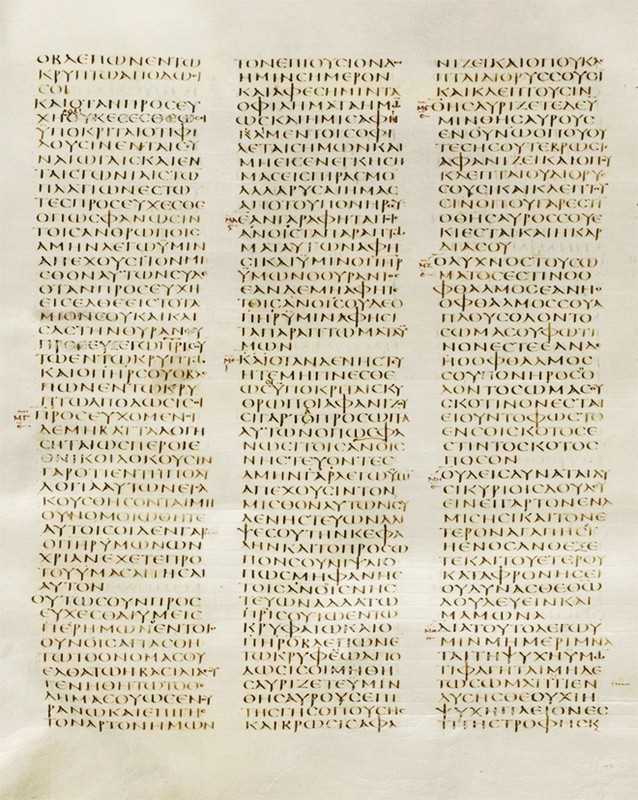 ΟΒΛΕΠΩΝΕΝΤΩ
ΚΡΥΠΤΩΑΠΟΔΩϹΙ
ϹΟΙ
ΚΑΙΟΤΑΝΠΡΟϹΕΥ
ΧΗΟΥΚΕϹΕϹΘΕΩϹ
ΥΠΟΚΡΙΤΑΙΟΤΙΦΙ
ΛΟΥϹΙΝΕΝΤΑΙϹΥ
ΝΑΓΩΓΑΙϹΚΑΙΕΝ
ΤΑΙϹΓΩΝΙΑΙϹΤΩ
ΠΛΑΤΙΩΝΕϹΤΩ
ΤΕϹΠΡΟϹΕΥΧΕϹΘΕ
ΟΠΩϹΦΑΝΩϹΙΝ
ΤΟΙϹΑΝΘΡΩΠΟΙϹ
ΑΜΗΝΛΕΓΩΥΜΙΝ
ΑΠΕΧΟΥϹΙΤΟΝΜΙ
ϹΘΟΝΑΥΤΩΝϹΥΔΕ
ΟΤΑΝΠΡΟϹΕΥΧΗ
ΕΙϹΕΛΘΕΕΙϹΤΟΤΑ
ΜΙΟΝϹΟΥΚΑΙΚΛΙ
ϹΑϹΤΗΝΘΥΡΑΝϹΟΥ
ΠΡΟϹΕΥΞΕΤΩΠΡΙϹΟΥ
ΤΩΕΝΤΩΚΡΥΠΤΩ
ΚΑΙΟΠΗΡϹΟΥΟΒΛΕ
ΠΩΝΕΝΤΩΚΡΥ
ΠΤΩΑΠΟΔΩϹΙϹΟΙ
ΜΓ ΠΡΟϹΕΥΧΟΜΕΝΟΙ
ΔΕΜΗΒΑΤΤΑΛΟΓΗ
ϹΗΤΑΙΩϹΠΕΡΟΙΕ
ΘΝΙΚΟΙΔΟΚΟΥϹΙΝ
ΓΑΡΟΤΙΕΝΤΗΠΟΛΥ
ΛΟΓΙΑΑΥΤΩΝΕΙϹΑ
ΚΟΥϹΘΗϹΟΝΤΑΙΜΗ
ΟΥΝΟΜΟΙΩΘΗΤΕ
ΑΥΤΟΙϹΟΙΔΕΝΓΑΡ
ΟΠΗΡΥΜΩΝΩΝ
ΧΡΙΑΝΕΧΕΤΕΠΡΟ
ΤΟΥΥΜΑϹΑΙΤΗϹΑΙ
ΑΥΤΟΝ
ΟΥΤΩϹΟΥΝΠΡΟϹ
ΕΥΧΕϹΘΑΙΥΜΕΙϹ
ΠΕΡΗΜΩΝΟΕΝΤΟΙϹ
ΟΥΝΟΙϹΑΓΙΑϹΘΗ
ΤΩΤΟΟΝΟΜΑϹΟΥ
ΕΛΘΑΤΩΗΒΑϹΙΛΙΑϹΟΥ
ΓΕΝΗΘΗΤΩΤΟΘΕ
ΛΗΜΑϹΟΥΩϹΕΝΟΥ
ΡΑΝΩΚΑΙΕΠΙΓΗϹ
ΤΟΝΑΡΤΟΝΗΜΩΝ
ΤΟΝΕΠΙΟΥϹΙΟΝΔΟϹ
ΗΜΙΝϹΗΜΕΡΟΝ
ΚΑΙΑΦΕϹΗΜΙΝΤΑ
ΟΦΙΛΗΜΑΤΑΗΜΩ
ΩϹΚΑΙΗΜΙϹΑΦΗ
ΚΑΜΕΝΤΟΙϹΟΦΙ
ΛΕΤΑΙϹΗΜΩΝΚΑΙ
ΜΗΕΙϹΕΝΕΓΚΗϹΗ
ΜΑϹΕΙϹΠΙΡΑϹΜΟ
ΑΛΛΑΡΥϹΑΙΗΜΑϹ
ΑΠΟΤΟΥΠΟΝΗΡΟΥ
ΕΑΝΓΑΡΑΦΗΤΑΙΤΟΙϹ
ΑΝΟΙϹΤΑΠΑΡΑΠΤΩ
ΜΑΤΑΑΥΤΩΝΑΦΗ
ϹΙΚΑΙΥΜΙΝΟΠΗΡ
ΥΜΩΝΟΟΥΡΑΝΙΟϹ
ΕΑΝΔΕΜΗΑΦΗΤΕ
ΤΟΙϹΑΝΟΙϹΟΥΔΕΟ
ΠΗΡΥΜΙΝΑΦΗϹΙ
ΤΑΠΑΡΑΠΤΩΜΑΤΑΥ
ΜΩΝ
ΚΑΙΟΤΑΝΔΕΝΗϹΤΕΥ
ΗΤΕΜΗΓΙΝΕϹΘΕ
ΩϹΟΙΥΠΟΚΡΙΤΑΙϹΚΥ
ΘΡΩΠΟΙΑΦΑΝΙΖΟΥ
ϹΙΓΑΡΤΟΠΡΟϹΩΠΟ
ΑΥΤΩΝΟΠΩϹΦΑ
ΝΩϹΙΤΟΙϹΑΝΟΙϹ
ΝΗϹΤΕΥΟΝΤΕϹ
ΑΜΗΝΓΑΡΛΕΓΩΥΜΙ
ΑΠΕΧΟΥϹΙΝΤΟΝ
ΜΙϹΘΟΝΑΥΤΩΝϹΥ
ΔΕΝΗϹΤΕΥΩΝΑΛΙ
ΨΕϹΟΥΤΗΝΚΕΦΑ
ΛΗΝΚΑΙΤΟΠΡΟϹΩ
ΠΟΝϹΟΥΝΙΨΑΙΟ
ΠΩϹΜΗΦΑΝΗϹ
ΤΟΙϹΑΝΟΙϹΝΗϹ
ΤΕΥΩΝΑΛΛΑΤΩ
ΠΡΙϹΟΥΤΩΕΝΤΩ
ΚΡΥΦΑΙΩΚΑΙΟ
ΠΗΡϹΟΥΟΒΛΕΠΩΝΕ
ΤΩΚΡΥΦΑΙΩΑΠΟ
ΔΩϹΙϹΟΙΜΗΘΗ
ϹΑΥΡΙΖΕΤΕΥΜΙΝ
ΘΗϹΑΥΡΟΥϹΕΠΙ
ΤΗϹΓΗϹΟΠΟΥϹΗϹ
ΚΑΙΒΡΩϹΙϹΑΦΑ
ΝΙΖΕΙΚΑΙΟΠΟΥΚΛΕ
ΠΤΑΙΔΙΟΡΥϹϹΟΥϹΙ
ΚΑΙΚΛΕΠΤΟΥϹΙΝ
ΘΗϹΑΥΡΙΖΕΤΕΔΕΥ
ΜΙΝΘΗϹΑΥΡΟΥϹ
ΕΝΟΥΝΩΟΠΟΥΟΥ
ΤΕϹΗϹΟΥΤΕΒΡΩϹΙϹ
ΑΦΑΝΙΖΕΙΚΑΙΟΠΟΥ
ΚΛΕΠΤΑΙΟΥΔΙΟΡΥϹ
ϹΟΥϹΙΚΑΙΚΛΕΠΤΟΥ
ϹΙΝΟΠΟΥΓΑΡΕϹΤΙ
ΟΘΗϹΑΥΡΟϹϹΟΥΕ
ΚΙΕϹΤΑΙΚΑΙΗΚΑΡ
ΔΙΑϹΟΥ
ΟΛΥΧΝΟϹΤΟΥϹΩ
ΜΑΤΟϹΕϹΤΙΝΟΟ
ΦΘΑΛΜΟϹΕΑΝΗΟ
ΟΦΘΑΛΜΟϹϹΟΥΑ
ΠΛΟΥϹΟΛΟΝΤΟ
ϹΩΜΑϹΟΥΦΩΤΙ
ΝΟΝΕϹΤΕΕΑΝΔΕ
ΗΟΟΦΘΑΛΜΟϹ
ϹΟΥΠΟΝΗΡΟϹΟ
ΛΟΝΤΟϹΩΜΑϹΟΥ
ϹΚΟΤΙΝΟΝΕϹΤΑΙ
ΕΙΟΥΝΤΟΦΩϹΤΟ
ΕΝϹΟΙϹΚΟΤΟϹΕ
ϹΤΙΝΤΟϹΚΟΤΟϹ
ΠΟϹΟΝ
ΟΥΔΕΙϹΔΥΝΑΤΑΙΔΥ
ϹΙΚΥΡΙΟΙϹΔΟΥΛΕΥ
ΕΙΝΕΙΓΑΡΤΟΝΕΝΑ
ΜΙϹΗϹΙΚΑΙΤΟΝΕ
ΤΕΡΟΝΑΓΑΠΗϹΙ
ΗΕΝΟϹΑΝΘΕΞΕ
ΤΕΚΑΙΤΟΥΕΤΕΡΟΥ
ΚΑΤΑΦΡΟΝΗϹΕΙ
ΟΥΔΥΝΑϹΘΕΘΩ
ΔΟΥΛΕΥΕΙΝΚΑΙ
ΜΑΜΩΝΑ
ΔΙΑΤΟΥΤΟΛΕΓΩΥ
ΜΙΝΜΗΜΕΡΙΜΝΑ
ΤΑΙΤΗΨΥΧΗΥΜΩ
ΤΙΦΑΓΗΤΑΙΜΗΔΕ
ΤΩϹΩΜΑΤΙΤΙΕΝ
ΔΥϹΗϹΘΕΟΥΧΙΗ
ΨΥΧΗΠΛΕΙΟΝΕϹ
ΤΙΤΗϹΤΡΟΦΗϹΚ